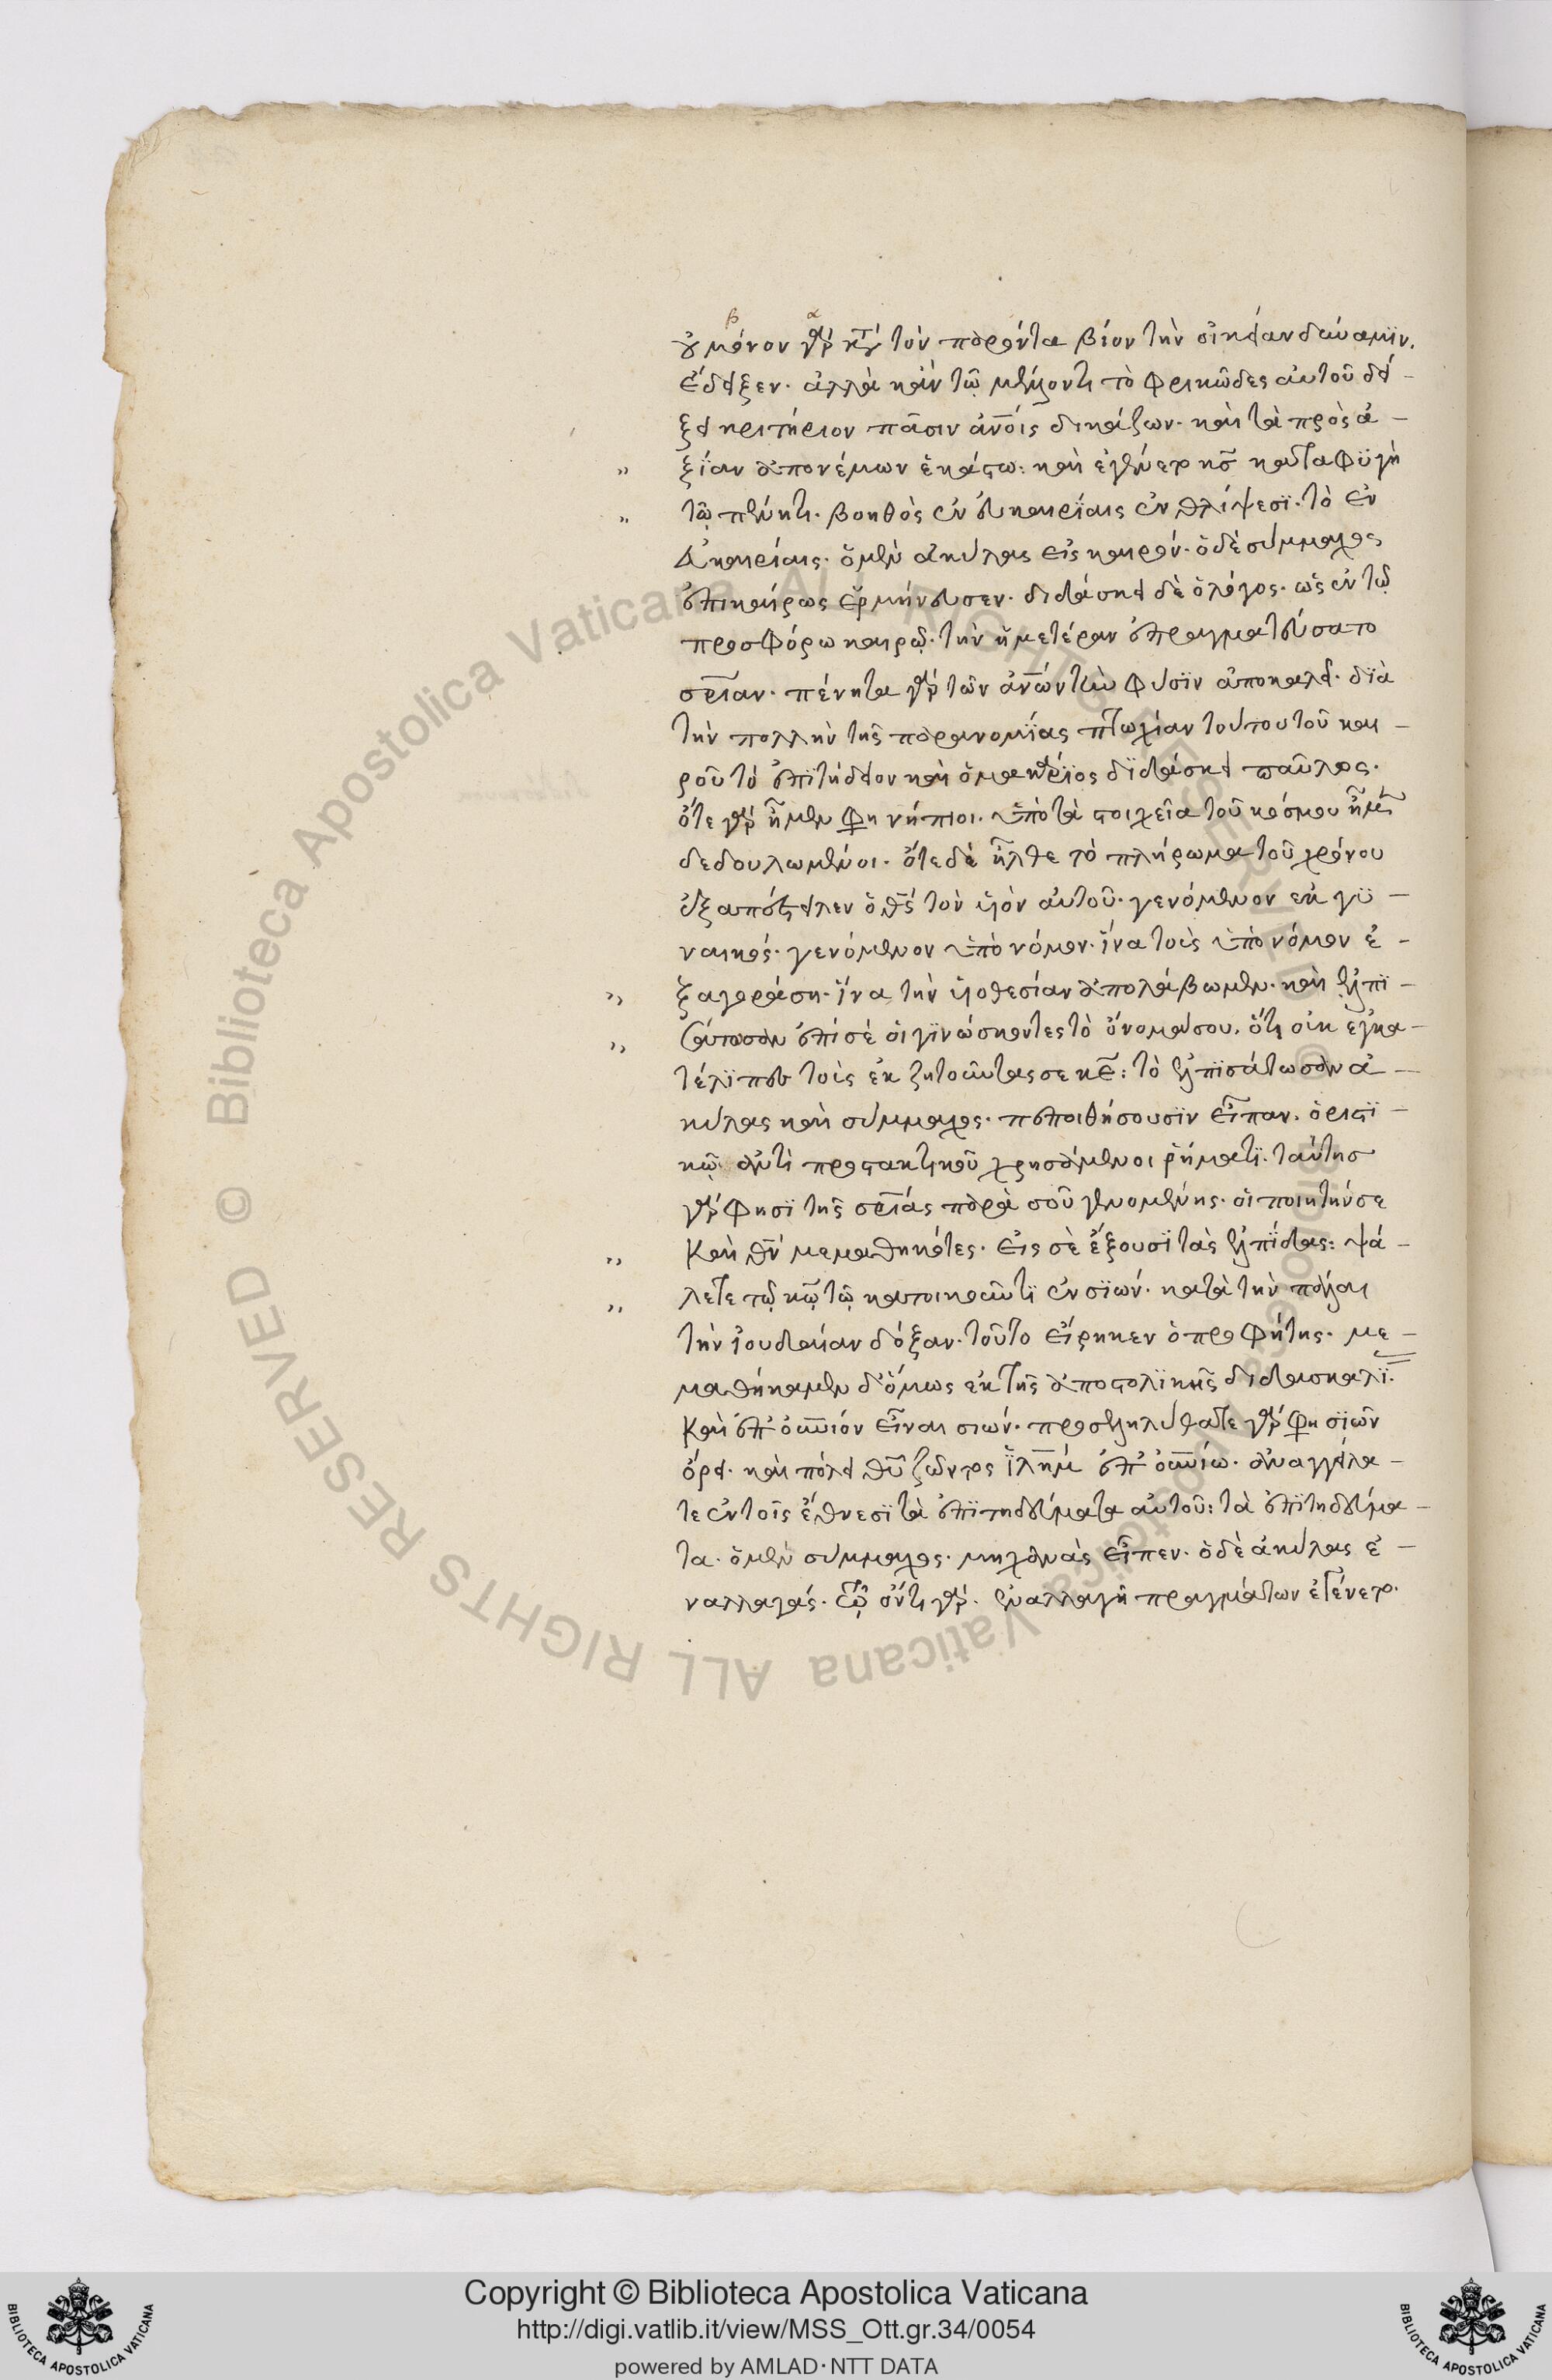 β α
οὐ μόνον γὰρ κατὰ τὸν παρόντα βίον τὴν οἰκείαν δύναμϊν.
ἔδειξεν. ἀλλὰ κἀν τῷ μέλλοντι τὸ φρικῶδες αὐτοῦ δεί-
ξει κριτήριον πᾶσιν ἀνοις δικάζων. καὶ τὰ πρὸς ἀ-
ξΐαν ἀπονέμων ἑκάστω: καὶ ἐγένετο κς καταφϋγὴ
τῷ πένητι. βοηθὸς ἐν εὐκαιρΐαις ἐν θλίψεσϊ. τὸ ἐν
εὐκαιρίαις. ὁ μὲν ἀκύλας εἰς καιρόν. ὁ δὲ σύμμαχος
ἐπικαίρως ἑρμήνευσεν. διδάσκει δὲ ὁ λόγος. ὡς ἐν τῷ
προσφόρω καιρῷ. τὴν ἡμετέραν ἐπραγματεύσατο
σριαν. πένητα γὰρ τῶν ἀνων τὴν φύσϊν ἀποκαλεῖ. δϊὰ
τὴν πολλὴν τῆς παρανομΐας πτωχίαν τούτου τοῦ και-
ροῦ τὸ ἐπϊτήδειον καὶ ὁ μακάρϊος δϊδάσκει παῦλος.
ὅτε γὰρ ἦμεν φη νήπιοι. ὑπὸ τὰ στοιχεῖα τοῦ κόσμου ἦμεν
δεδουλωμένοι. ὅτε δὲ ἦλθε τὸ πλήρωμα τοῦ χρόνου
ἐξαπέστειλεν ὁ θς τὸν υἱὸν αὐτοῦ. γενόμενον ἐκ γϋ-
ναικός. γενόμενον ὑπὸ νόμον. ἵνα τοὺς ὑπὸ νόμον ἐ-
ξαγοράση. ἵνα τὴν υἱοθεσίαν ἀπολάβωμεν. καὶ ἐλπϊ-
σάτωσαν ἐπί σὲ οἱ γϊνώσκοντες τὸ ὄνομά σου. ὅτι οὐκ ἐγκα-
τέλϊπες τοὺς ἐκζητοῦντας σε κε: τὸ ἐλπϊσάτωσαν ἀ-
κύλας καὶ σύμμαχος. πεποιθήσουσϊν εἶπαν. ὁριστϊ-
κῷ ἀντὶ προστακτικοῦ χρησάμενοι ῥήματϊ. ταύτησ
γὰρ φησϊ τῆς σριας παρὰ σοῦ γενομένης. οἱ ποιητήν σε
καὶ θν μεμαθηκότες. εἰς σὲ ἕξουσϊ τὰς ἐλπΐδας: ψά-
λετε τῷ κω τῷ κατοικοῦντϊ ἐν σϊών. κατὰ τὴν πάλαι
τὴν ἰουδαίαν δόξαν. τοῦτο εἴρηκεν ὁ προφήτης. με-
μαθήκαμεν δ' ὅμως ἐκ τῆς ἀποστολϊκῆς διδασκαλϊ.
καὶ ἐπουνιόν εἶναι σιών. προσεληλύθατε γὰρ φη σϊὼν
ὄρει. καὶ πόλει θυ ζῶντος ϊλημ ἐπουνίω. ἀναγγείλα-
τε ἐν τοῖς ἔθνεσϊ τὰ ἐπϊτηδεύματα αὐτοῦ: τὰ ἐπϊτηδεύμα-
τα. ὁ μὲν σύμμαχος. μηχανὰς εἶπεν. ὁ δὲ ἀκύλας ἐ-
ναλλαγάς. τῷ ὄντι γὰρ. ἐναλλαγὴ πραγμάτων ἐγένετο.
Copyright © Biblioteca Apostolica Vaticana
http://digi.vatlib.it/view/MSS_Ott.gr.34/0054
powered by AMLAD·NTT DATA
BIBLIOTECA APOSTOLICA VATICANA
BIBLIOTECA APOSTOLICA VATICANA
Biblioteca Apostolica Vaticana ALL RIGHTS RESERVED ©
Biblioteca Apostolica Vaticana ALL RIGHTS RESERVED ©